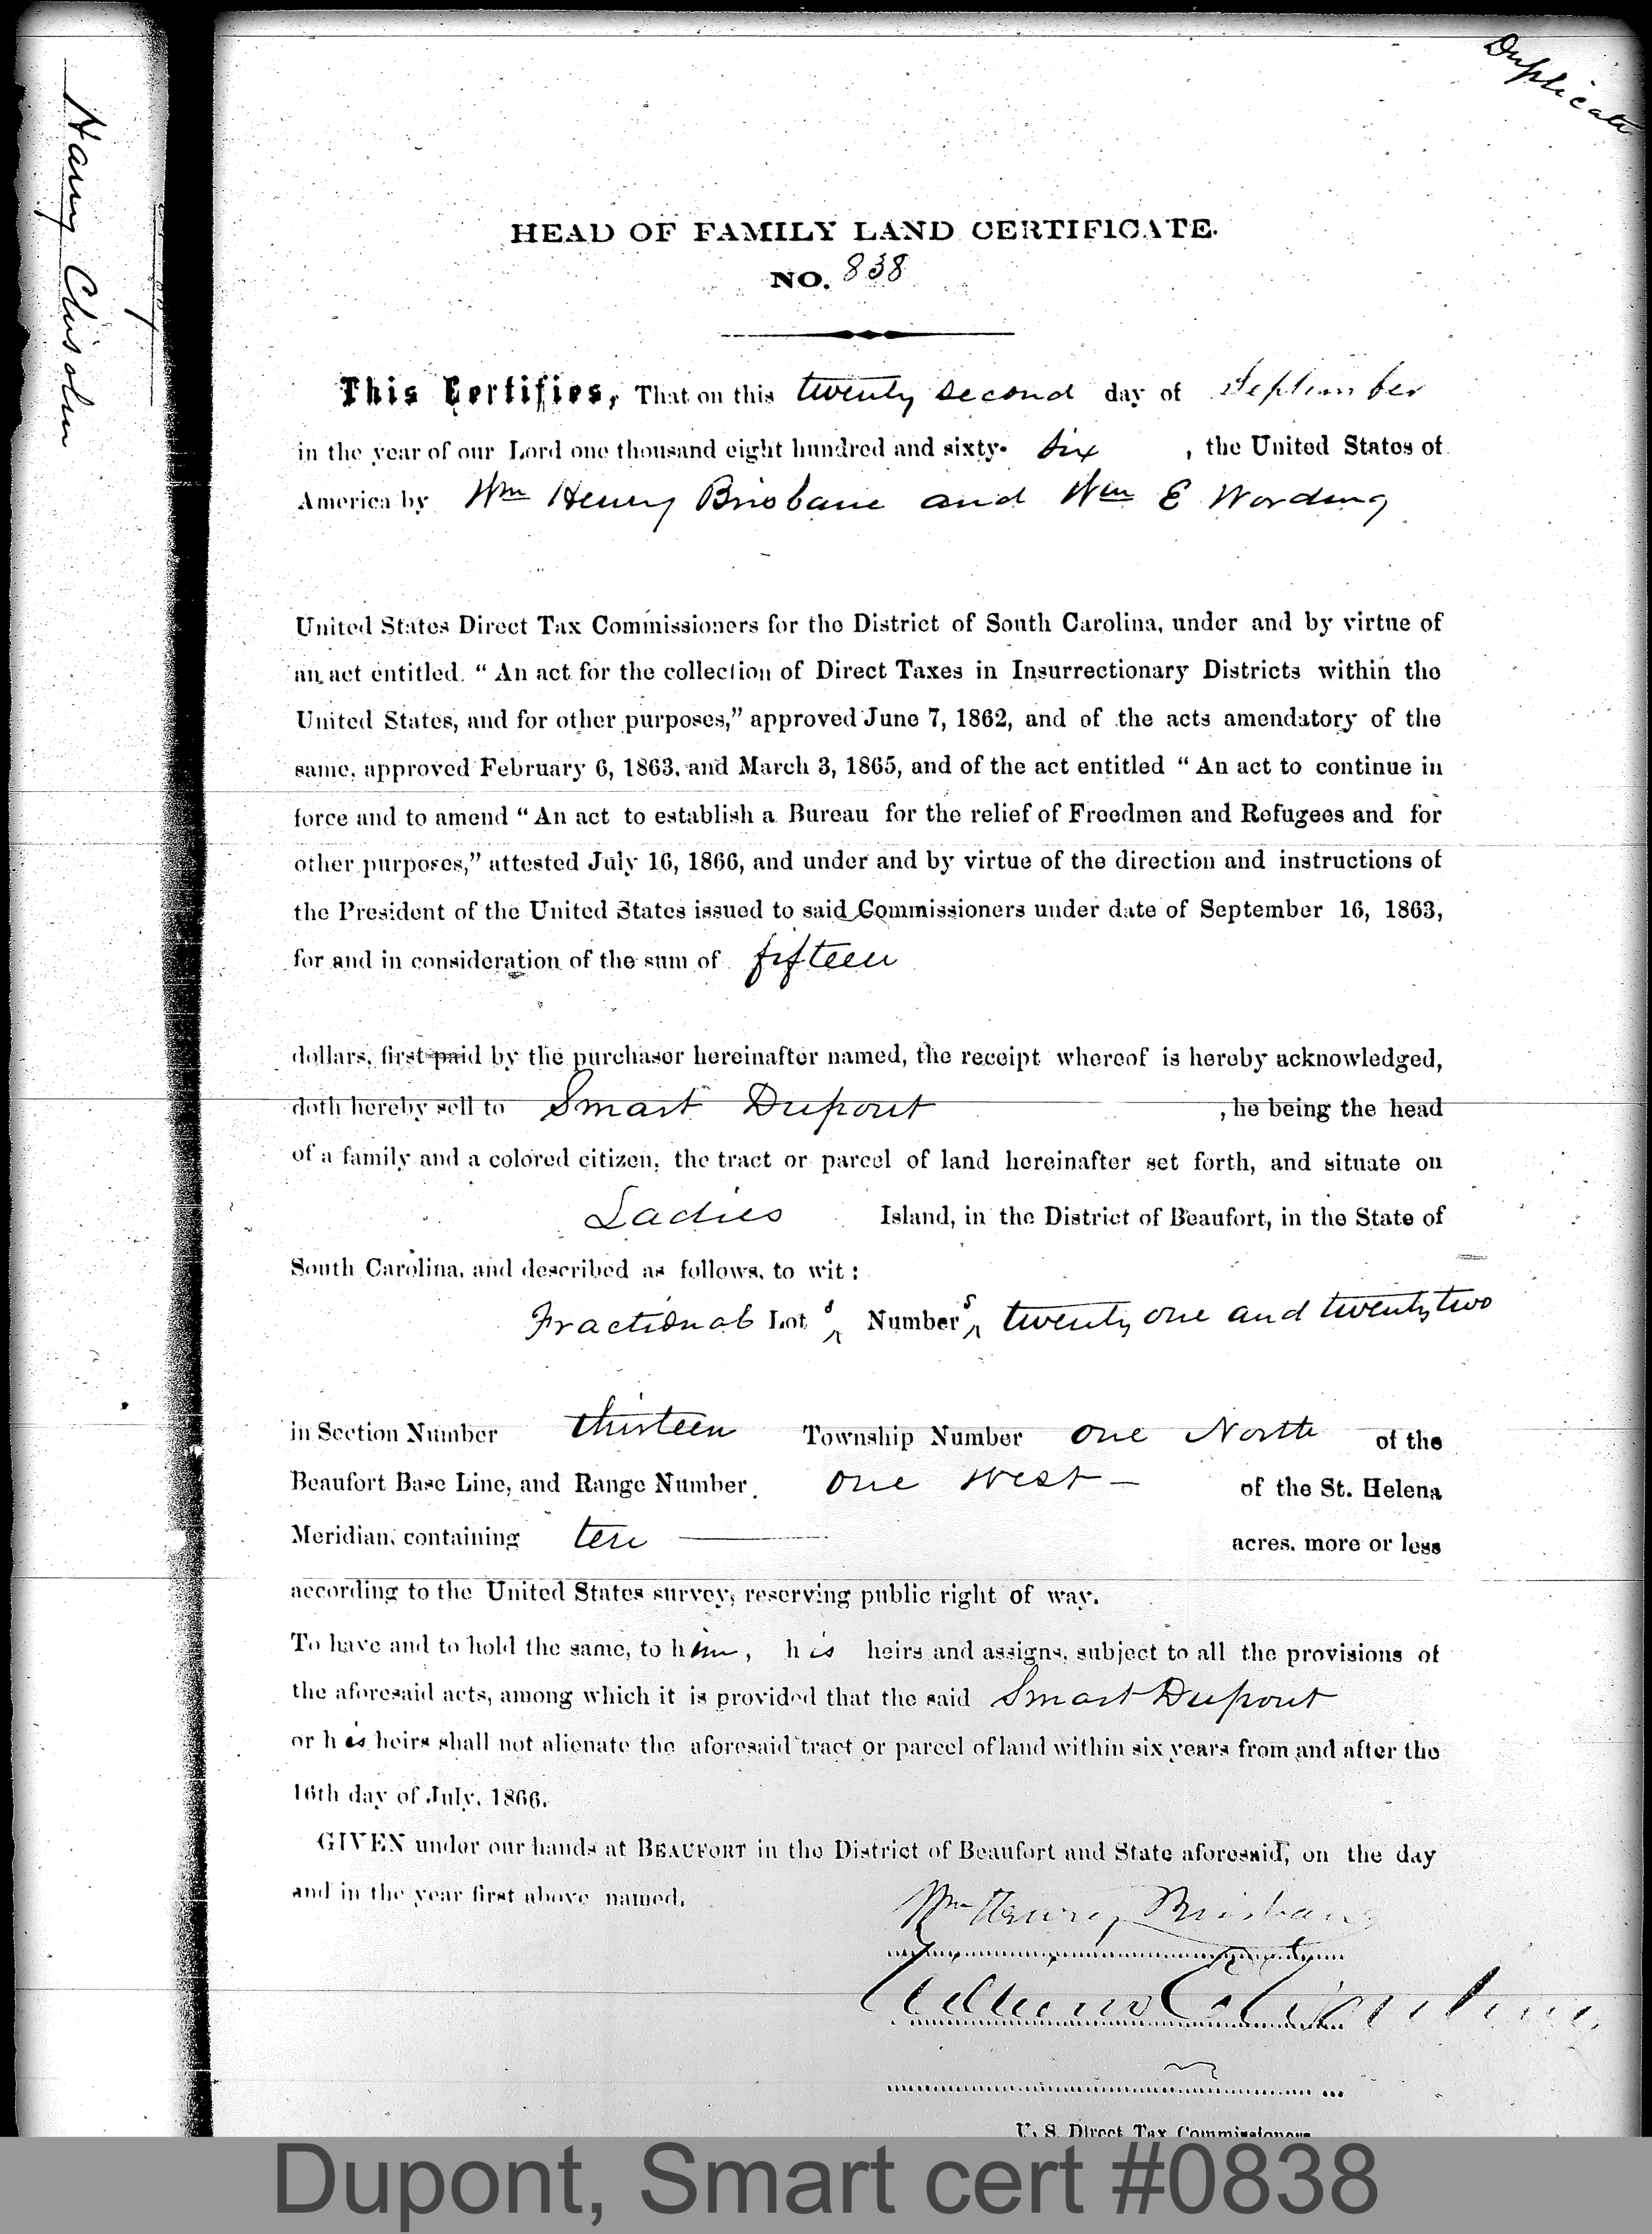 Duplicate
Harry Chisolm
HEAD OF FAMILY LAND CERTIFICATE.
NO. 838
This Certifies, That on this twenty second day of September
in the year of our Lord one thousand eight hundred and sixty- six , the United States of
America by Wm Henry Brisbane and Wm E Wording
United States Direct Tax Commissioners for the District of South Carolina, under and by virtue of
an act entitled. “ An act for the collection of Direct Taxes in Insurrectionary Districts within the
United States, and for other purposes,” approved June 7, 1862, and of the acts amendatory of the
same, approved February 6, 1863, and March 3, 1865, and of the act entitled “ An act to continue in
force and to amend “ An act to establish a Bureau for the relief of Freedmen and Refugees and for
other purposes,” attested July 16, 1866, and under and by virtue of the direction and instructions of
the President of the United States issued to said Commissioners under date of September 16, 1863,
for and in consideration of the sum of fifteen
dollars, first paid by the purchaser hereinafter named, the receipt whereof is hereby acknowledged,
doth hereby sell to Smart Dupont , he being the head
of a family and a colored citizen, the tract or parcel of land hereinafter set forth, and situate on
Ladies Island, in the District of Beaufort, in the State of
South Carolina, and described as follows, to wit :
Fractional Lot s Number s twenty one and twenty two
in Section Number thirteen Township Number one North of the
Beaufort Base Line, and Range Number one West — of the St. Helena
Meridian, containing ten — acres, more or less
according to the United States survey, reserving public right of way.
To have and to hold the same, to him, his heirs and assigns, subject to all the provisions of
the aforesaid acts, among which it is provided that the said Smart Dupont
or his heirs shall not alienate the aforesaid tract or parcel of land within six years from and after the
16th day of July, 1866.
GIVEN under our hands at BEAUFORT in the District of Beaufort and State aforesaid, on the day
and in the year first above named.
Wm Henry Brisbane
U. S. Direct Tax Commissioners
Dupont, Smart cert #0838